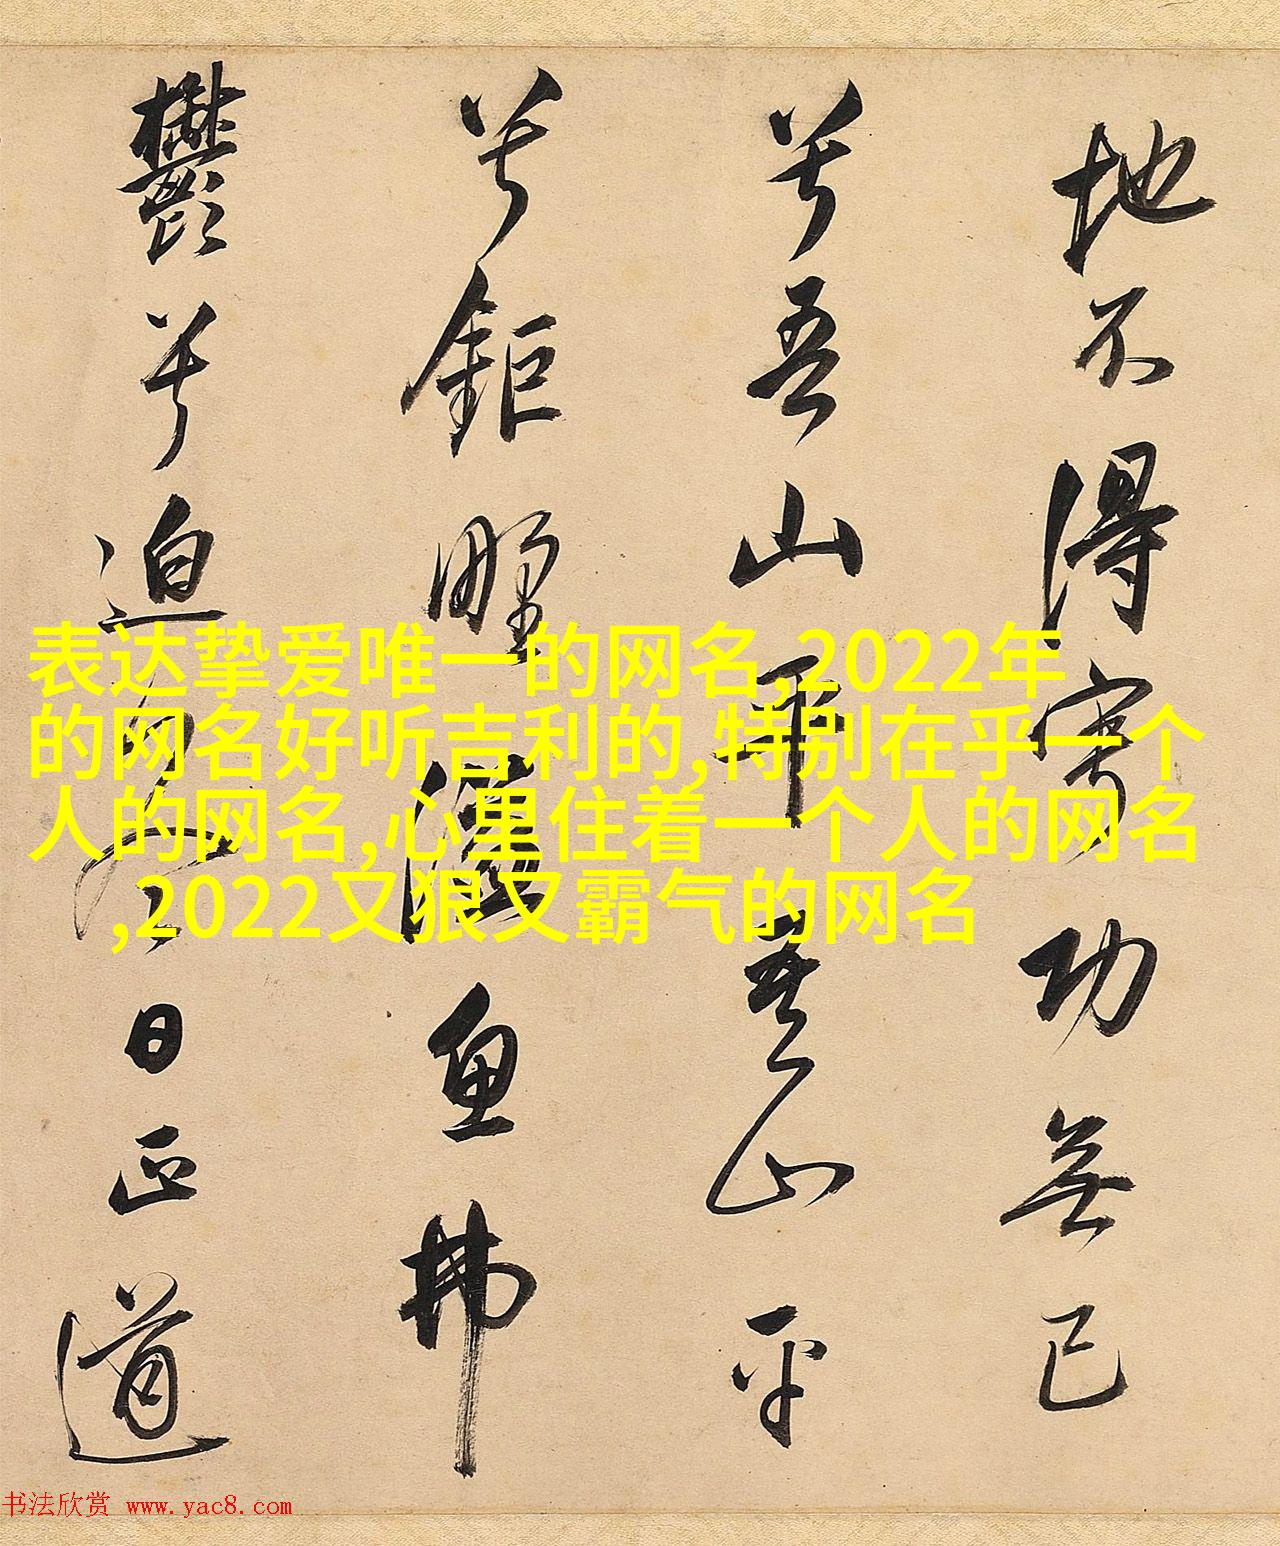 地不得寧功無已
兮吾山平吾山平
兮鉅野溢魚拂
鬱兮迫冬日正道
表达挚爱唯一的网名,2022年
的网名好听吉利的,特别在乎一个
人的网名,心里住着一个人的网名
,2022又狠又霸气的网名
书法欣赏 www.yac8.com